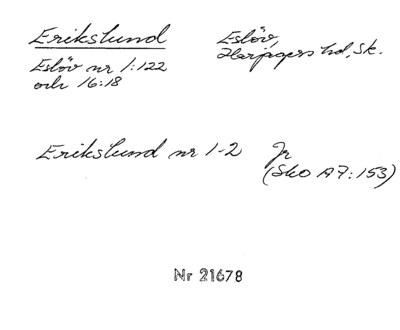 Erikslund
Eslöv nr 1:122
och 16:18
Eslöv,
Harjagers hd, Sk.
Erikslund nr 1-2
Jr
(SkO A7:153)
Nr 21678